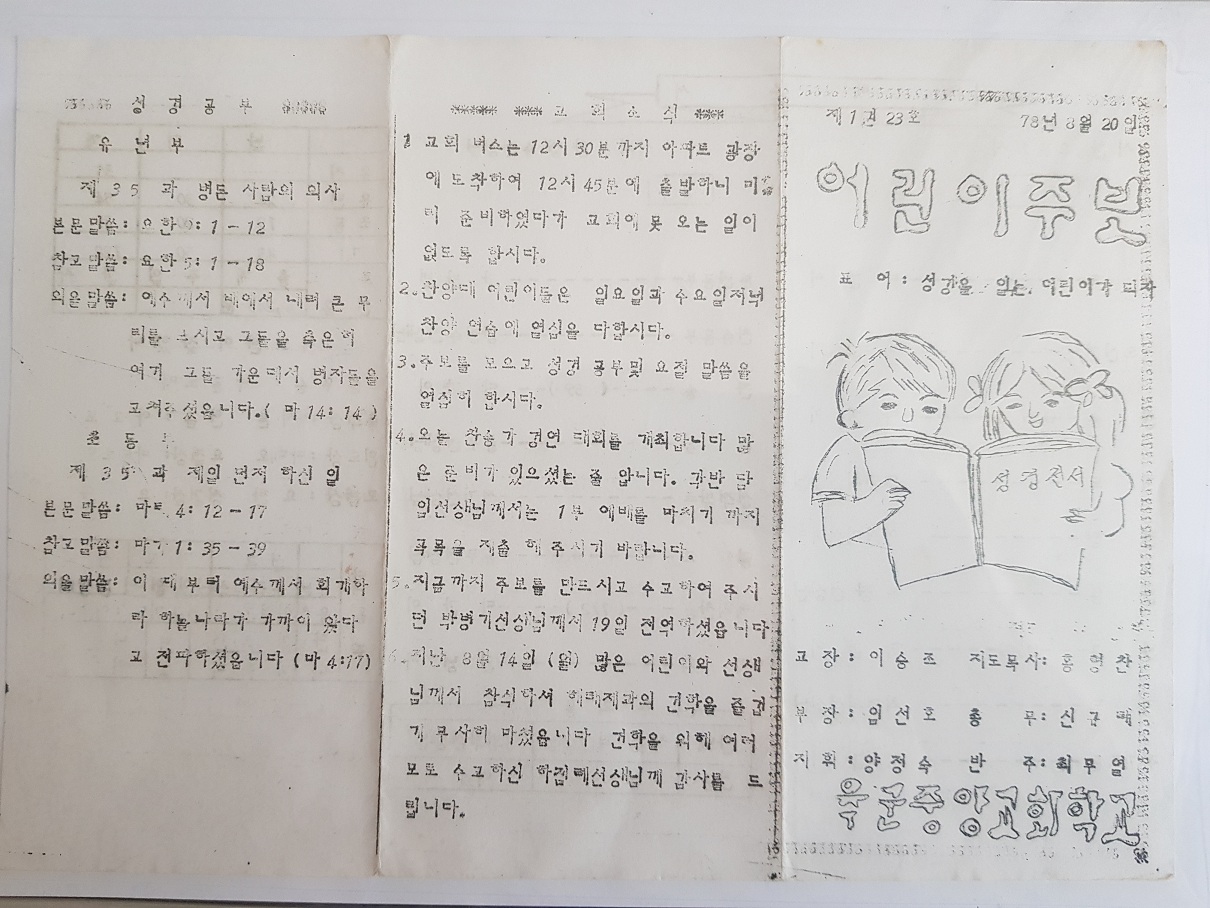 성 경 공 부
유 년 부
제 3 5 과 병든 사람의 의사
본문말씀: 요한 9: 1 - 12
참고말씀: 요한 5: 1 - 18
외울말씀: 예수께서 배에서 내려 큰 무
리를 보시고 그들을 측은히
여겨 그들 가운데서 병자들을
고쳐주셨읍니다.( 마 14: 14 )
초 등 부
제 3 5 과 제일 먼저 하신 일
본문말씀: 마태 4: 12 - 17
참고말씀: 마가 1: 35 - 39
외울말씀: 이 때 부터 예수께서 회개하
라 하늘나라가 가까이 왔다
고 전파하셨읍니다 (마 4:17)
교 회 소 식
1 교회 버스는 12시 30분 까지 아파트 광장
에 도착하여 12시 45분에 출발하니 미
리 준비하였다가 교회에 못 오는 일이
없도록 합시다.
2. 찬양대 어린이들은 일요일과 수요일저녁
찬양 연습에 열심을 다합시다.
3. 주보를 모으고 성경 공부및 요절 말씀을
열심히 합시다.
4. 오늘 찬송가 경연 대회를 개최합니다 많
은 준비가 있으셨는 줄 압니다. 각반 담
임선생님께서는 1부 예배를 마치기 까지
곡목을 제출 해 주시기 바랍니다.
5. 지금까지 주보를 만드시고 수고하여 주시
던 박병기선생님께서 19일 전역하셨읍니다
6. 지난 8월 14일 (월) 많은 어린이와 선생
님께서 참석하셔 해태제과의 견학을 즐겁
게 무사히 마쳤읍니다 견학을 위해 여러
모로 수고하신 하점례선생님께 감사를 드
립니다.
제 1권 23호 78년 8월 20일
어린이주보
표 어 : 성경을 읽는 어린이가 되자
성경전서
교 장 : 이 승 조 지도목사: 홍 영 찬
부 장 : 임 선 호 총 무: 신 규 택
지 휘 : 양 정 숙 반 주: 최 무 열
중앙교회학교